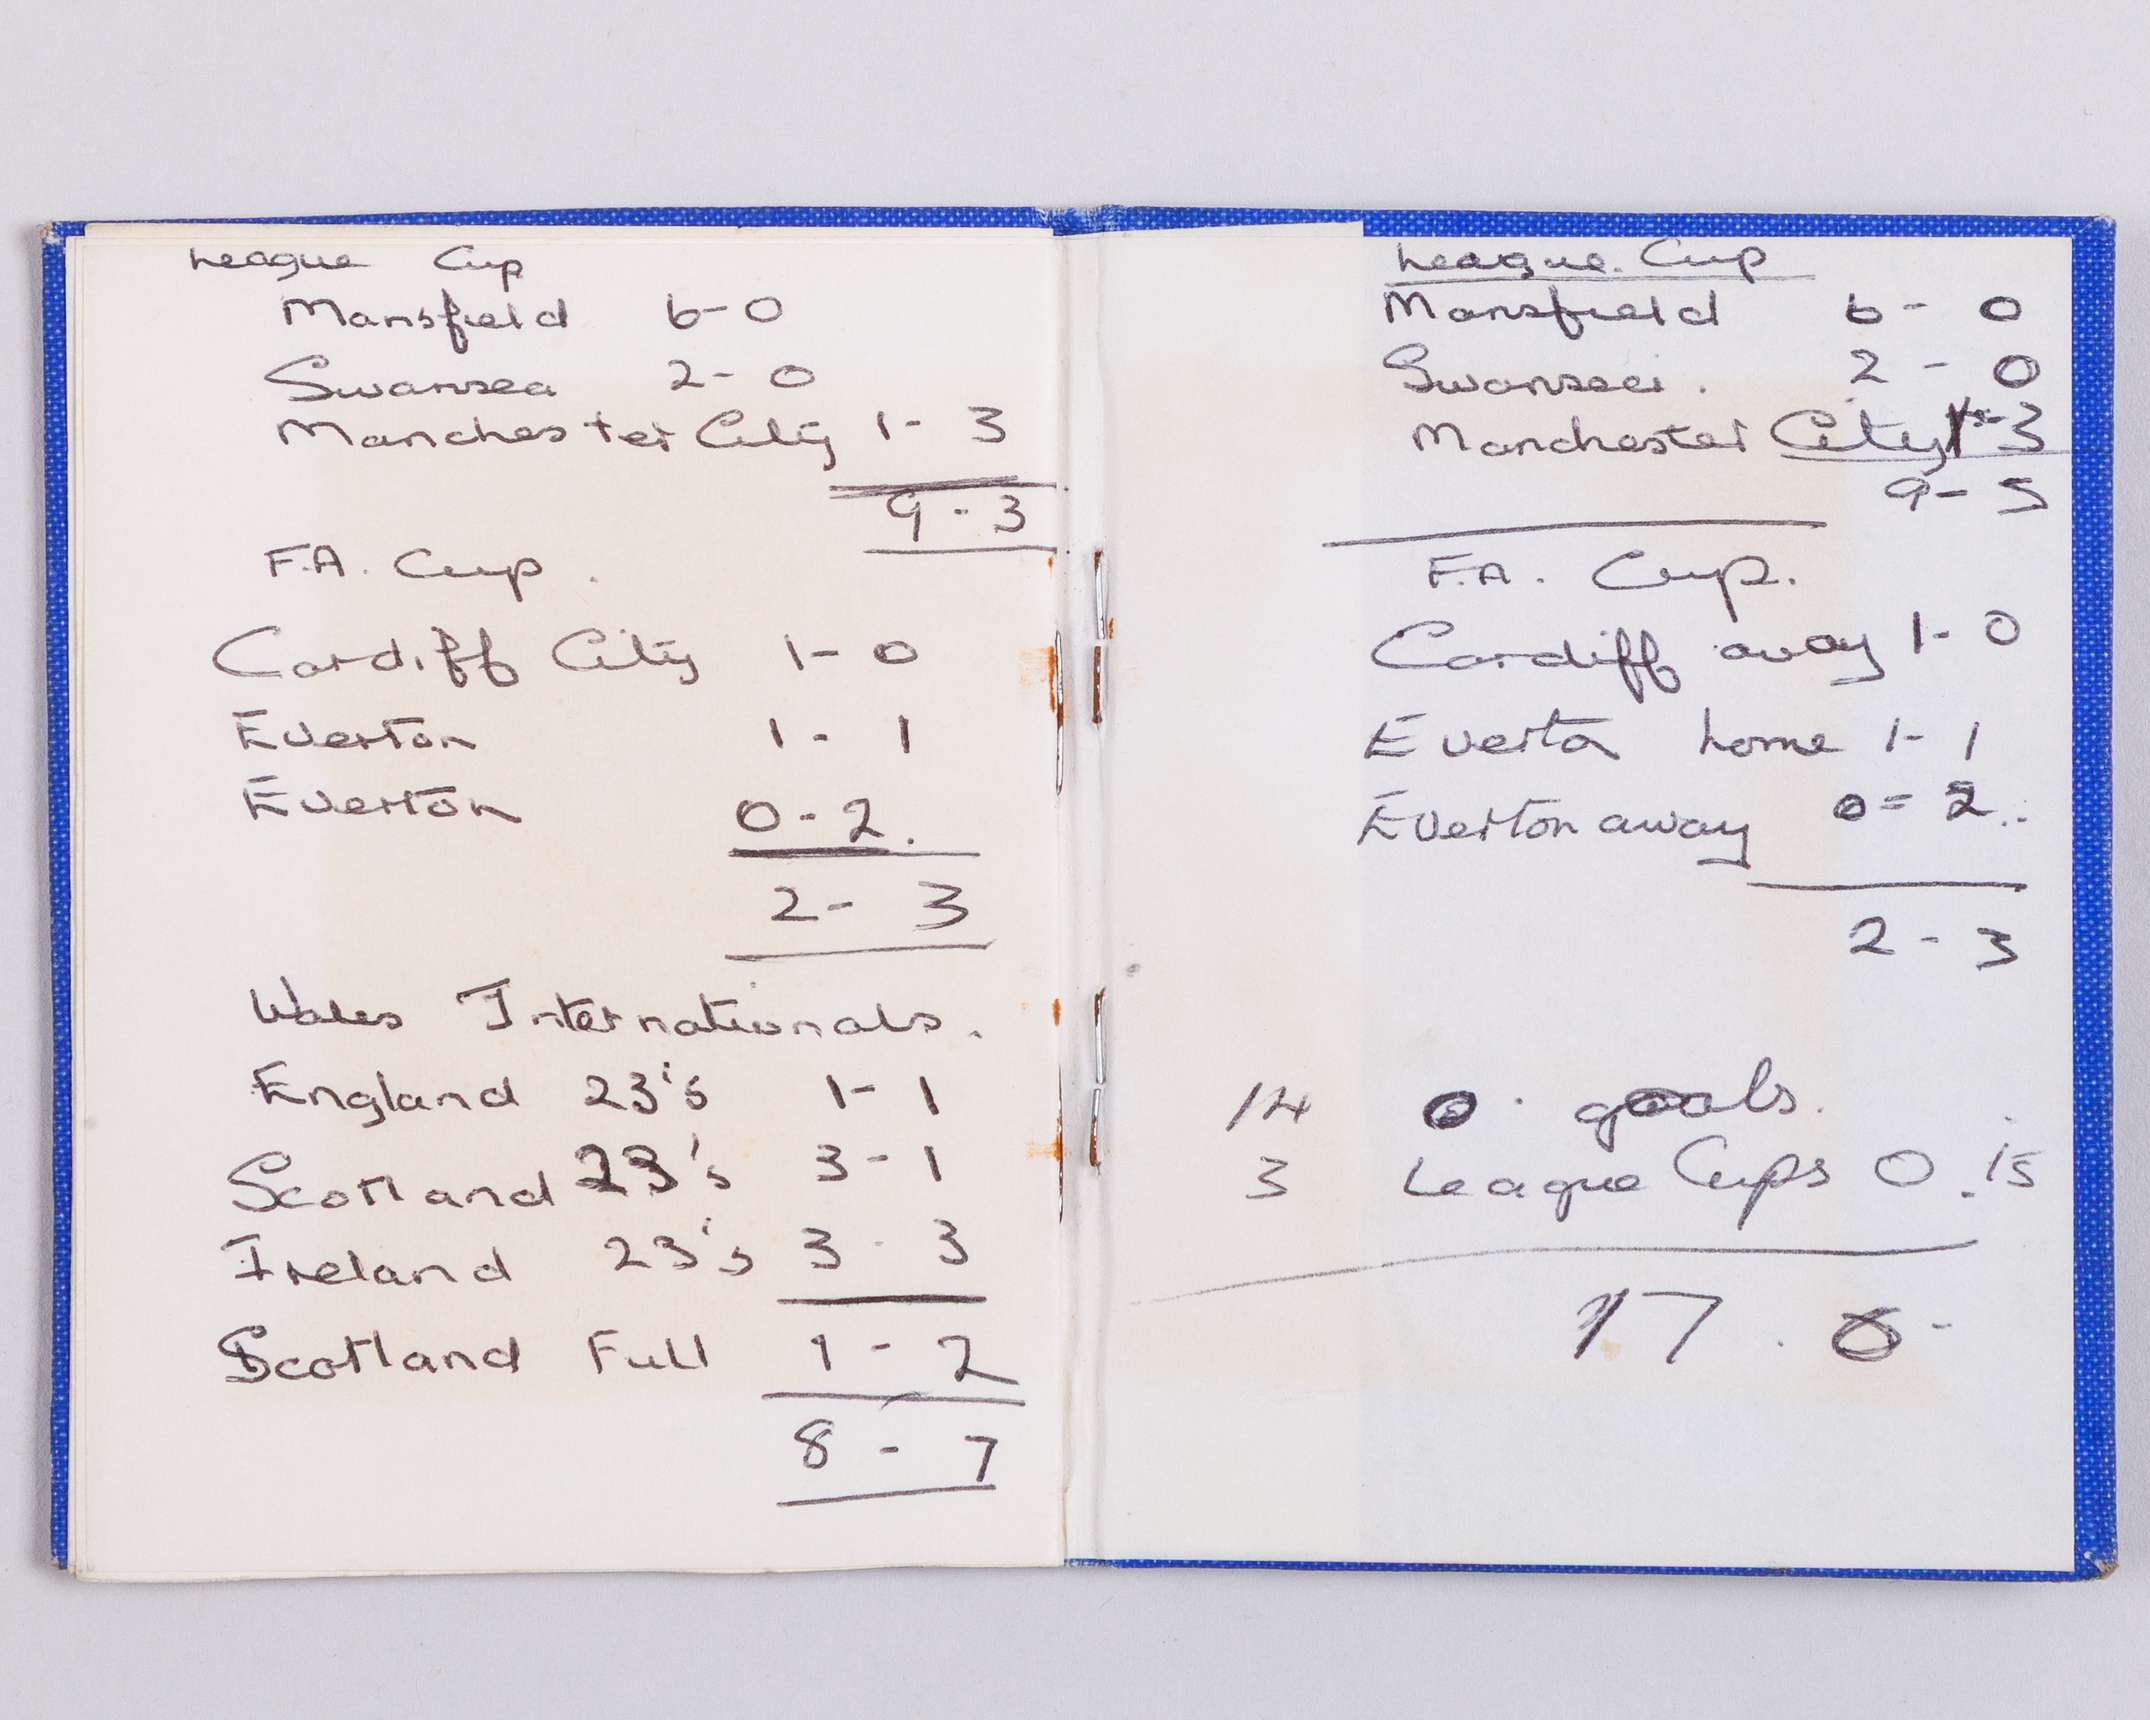 League Cup
Mansfield 6-0
Swansea 2-0
Manchester City 1-3
9-3
F.A. Cup.
Cardiff City 1-0
Everton 1-1
Everton 0-2.
2-3
Wales Internationals.
England 23's 1-1
Scotland 23's 3-1
Ireland 23's 3-3
Scotland Full 1-2
8-7
League Cup
Mansfield 6-0
Swansea. 2-0
Manchester City 3
9-5
F.A. Cup.
Cardiff away 1-0
Everton home 1-1
Everton away 0-2..
2-3
14 0. goals.
3 League Cups 0.15
17.